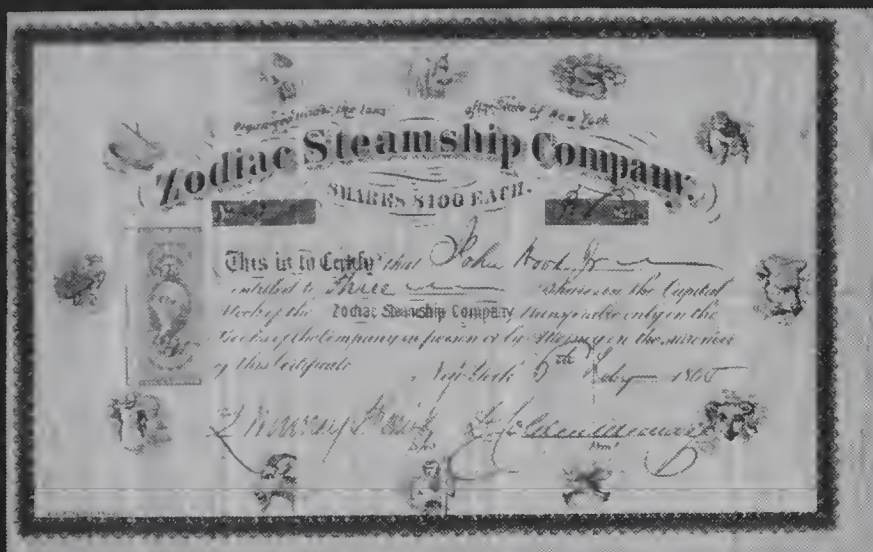 Organized under the Laws of the State of New York
Zodiac Steamship Company.
SHARES $100 EACH.
This is to Certify that John Hook Jr
entitled to Three Shares in the Capital
Stock of the Zodiac Steamship Company transferable only on the
Books of the Company in person or by Attorney on the surrender
of this Certificate
New York 5th 1865